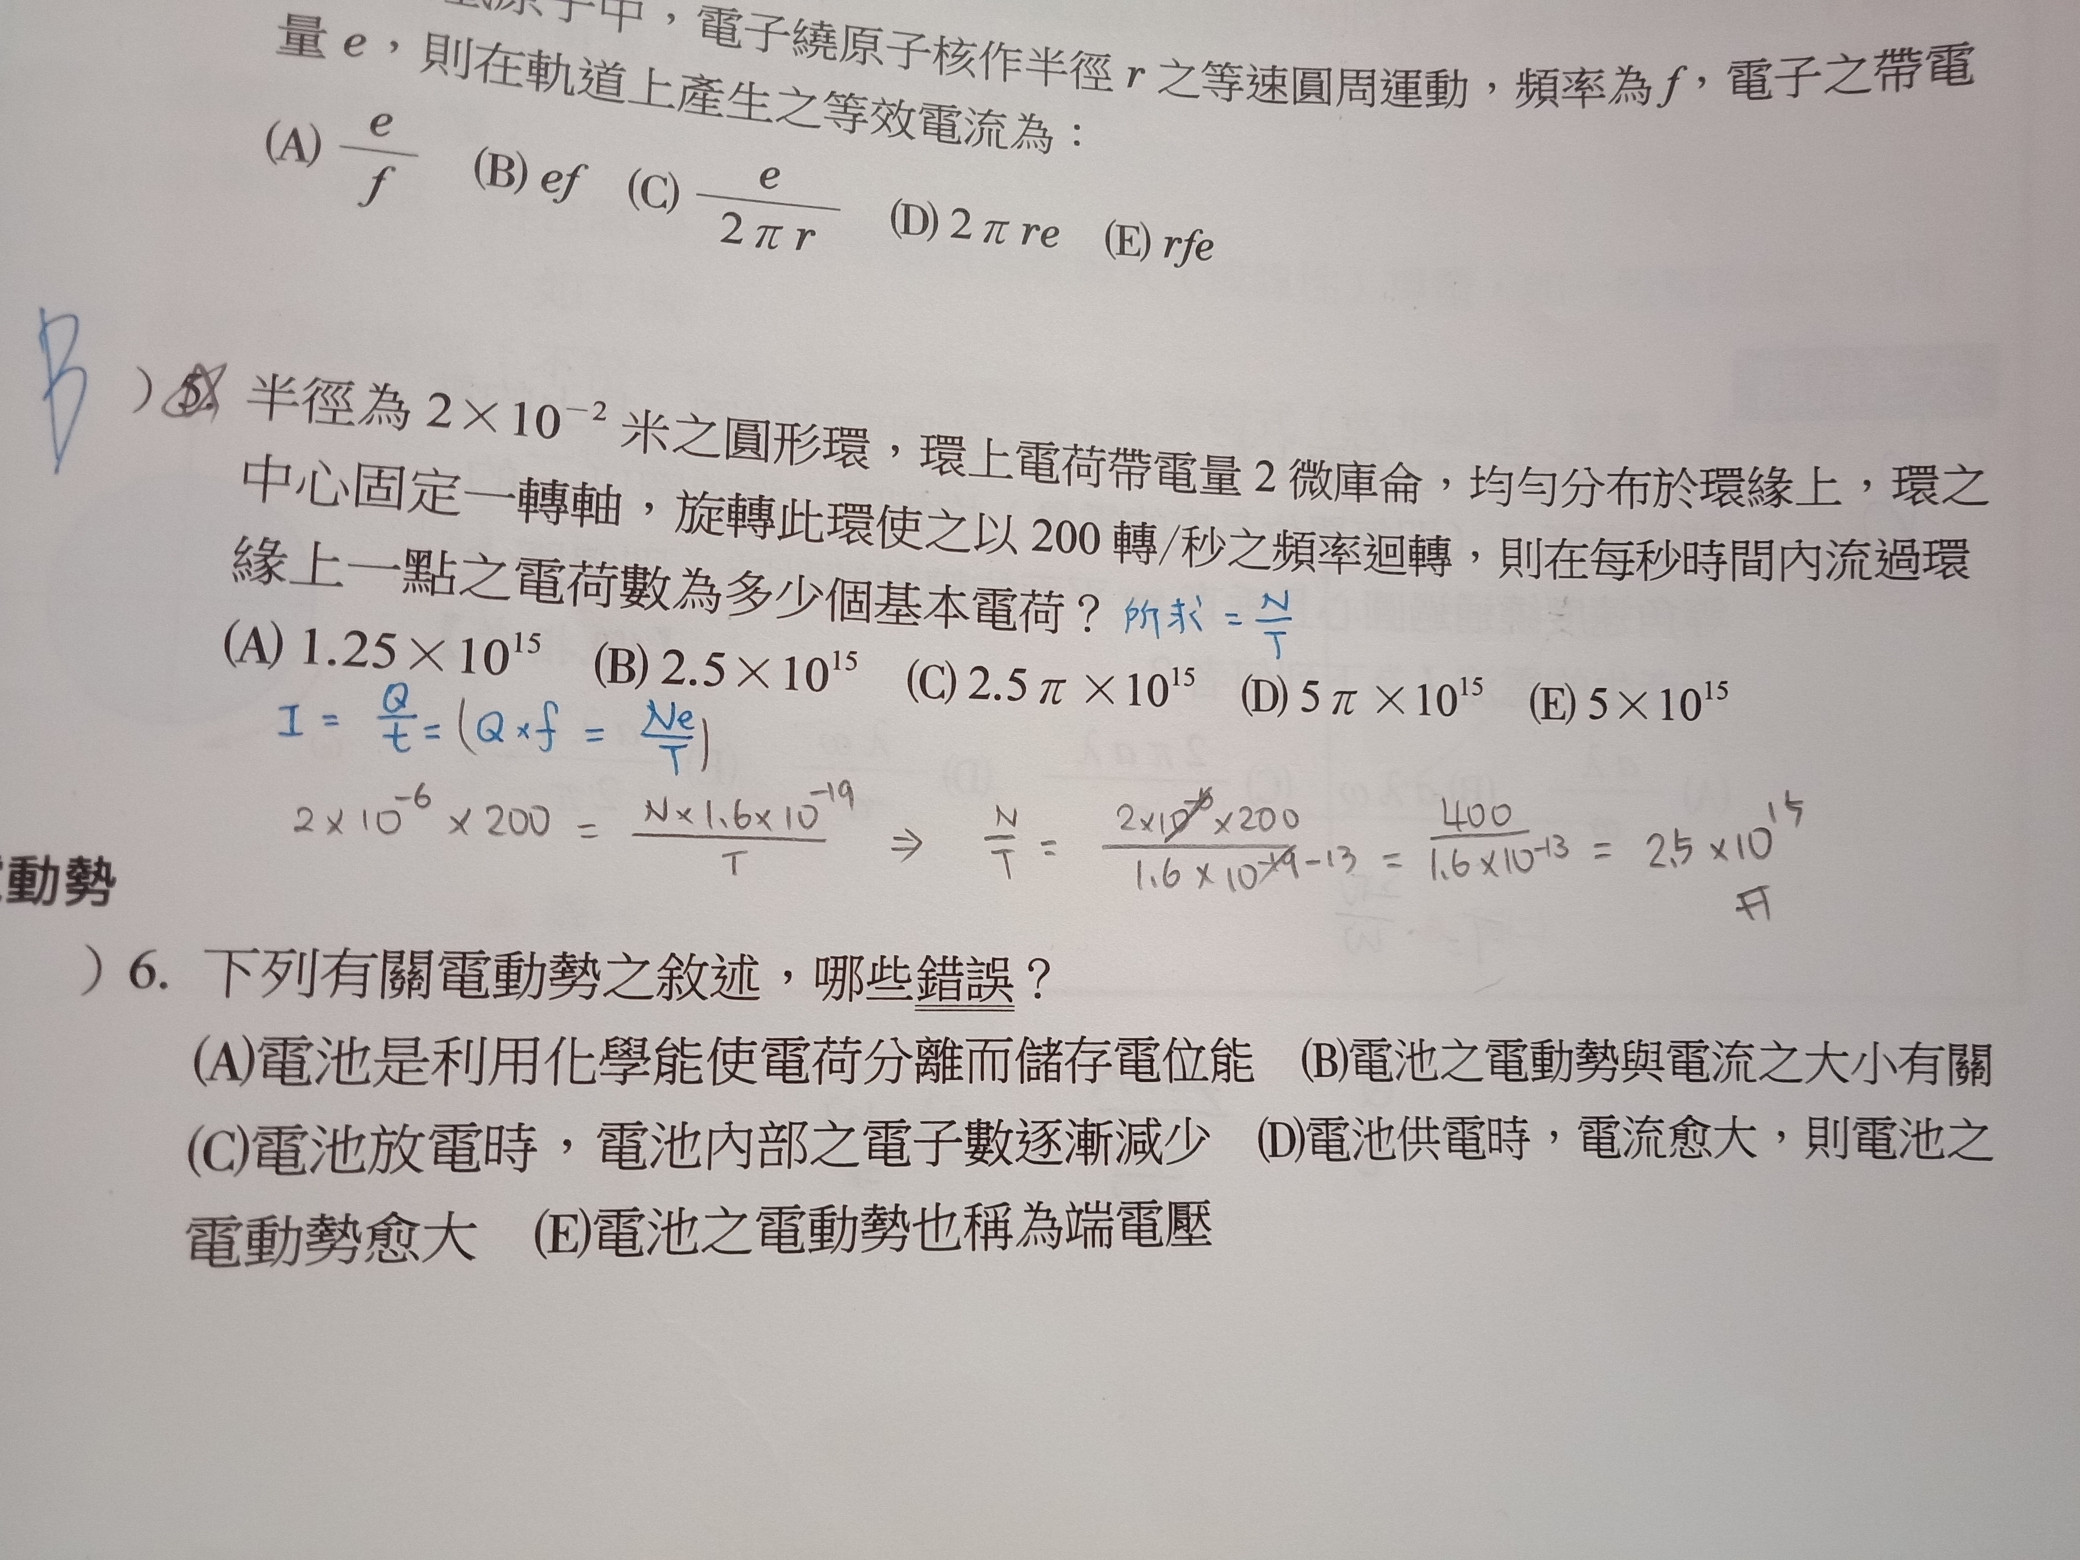 原子中，電子繞原子核作半徑 r 之等速圓周運動，頻率為 f，電子之帶電
量 e，則在軌道上產生之等效電流為：
(A) e/f (B) ef (C) e/2πr (D) 2πre (E) rfe
B
) 5. 半徑為 2×10⁻² 米之圓形環，環上電荷帶電量 2 微庫侖，均勻分布於環緣上，環之
中心固定一轉軸，旋轉此環使之以 200 轉/秒之頻率迴轉，則在每秒時間內流過環
緣上一點之電荷數為多少個基本電荷？ 所求 = N/T
(A) 1.25×10¹⁵ (B) 2.5×10¹⁵ (C) 2.5π×10¹⁵ (D) 5π×10¹⁵ (E) 5×10¹⁵
I = Q/t = (Q×f = Ne/T)
2×10⁻⁶ × 200 = N×1.6×10⁻¹⁹/T ⇒ N/T = 2×10⁻⁶×200/1.6×10⁻¹⁹ -13 = 400/1.6×10⁻¹³ = 2.5×10¹⁵
動勢
) 6. 下列有關電動勢之敘述，哪些錯誤？
(A)電池是利用化學能使電荷分離而儲存電位能 (B)電池之電動勢與電流之大小有關
(C)電池放電時，電池內部之電子數逐漸減少 (D)電池供電時，電流愈大，則電池之
電動勢愈大 (E)電池之電動勢也稱為端電壓